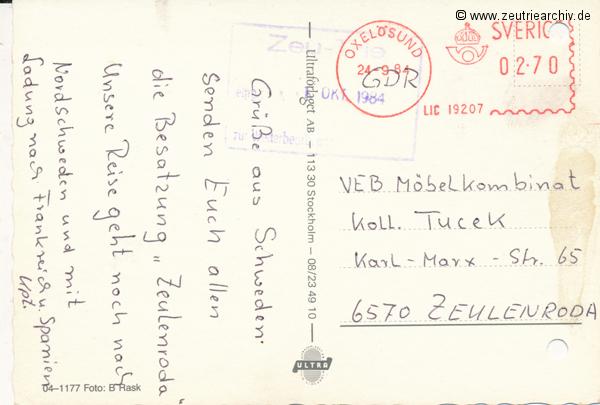 © www.zeutriearchiv.de
OXELÖSUND
24-9.84
SVERIGE
02.70
LIC 19207
GDR
OKT. 1984
Grüße aus Schweden.
senden Euch allen
die Besatzung „Zeulenroda"
Unsere Reise geht noch nach
Nordschweden und mit
Ladung nach Frankreich u. Spanien
Ultraförlaget AB – 113 30 Stockholm – 08/23 49 10
ULTRA
VEB Möbelkombinat
Koll. Tucek
Karl-Marx-Str. 65
6570 ZEULENRODA
04-1177 Foto: B Rask